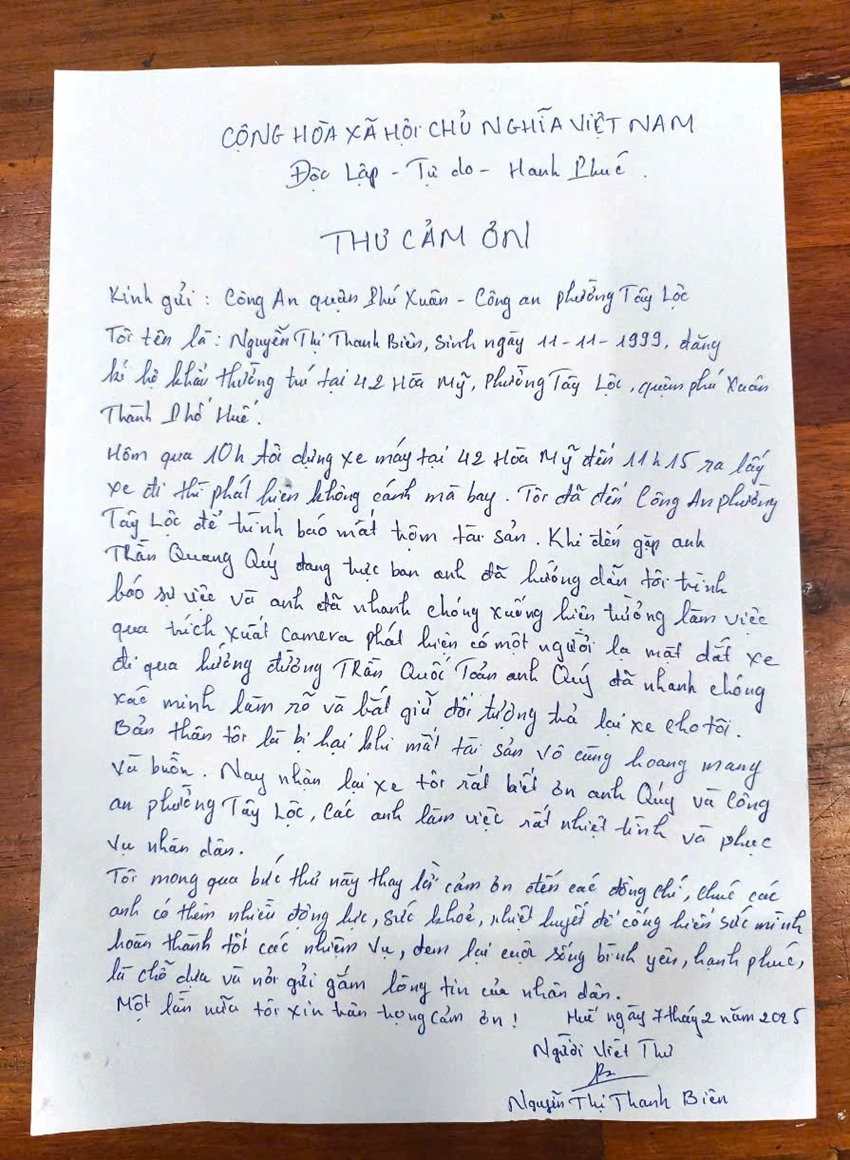 CỘNG HÒA XÃ HỘI CHỦ NGHĨA VIỆT NAM
Độc Lập - Tự do - Hạnh Phúc.
THƯ CẢM ƠN
Kính gửi: Công An quận Phú Xuân - Công an phường Tây Lộc
Tôi tên là: Nguyễn Thị Thanh Biên, sinh ngày 11-11-1999, đăng
kí hộ khẩu thường trú tại 42 Hòa Mỹ, Phường Tây Lộc, quận phú Xuân
Thành Phố Huế.
Hôm qua 10h tôi dựng xe máy tại 42 Hòa Mỹ đến 11h15 ra lấy
xe đi thì phát hiện không cánh mà bay. Tôi đã đến Công An phường
Tây Lộc để trình báo mất trộm tài sản. Khi đến gặp anh
Trần Quang Quý đang trực ban anh đã hướng dẫn tôi trình
báo sự việc và anh đã nhanh chóng xuống hiện trường làm việc
qua trích xuất camera phát hiện có một người lạ mặt dắt xe
đi qua hướng đường Trần Quốc Toản anh Quý đã nhanh chóng
xác minh làm rõ và bắt giữ đối tượng trả lại xe cho tôi.
Bản thân tôi là bị hại khi mất tài sản vô cùng hoang mang
và buồn. Nay nhận lại xe tôi rất biết ơn anh Quý và Công
an phường Tây Lộc, các anh làm việc rất nhiệt tình và phục
vụ nhân dân.
Tôi mong qua bức thư này thay lời cảm ơn đến các đồng chí, chúc các
anh có thêm nhiều động lực, sức khoẻ, nhiệt huyết để cống hiến sức mình
hoàn thành tốt các nhiệm vụ, đem lại cuộc sống bình yên, hạnh phúc,
là chỗ dựa và nơi gửi gắm lòng tin của nhân dân.
Một lần nữa tôi xin trân trọng cảm ơn! Huế ngày 7 thág 2 năm 2025
Người Viết Thư
Nguyễn Thị Thanh Biên